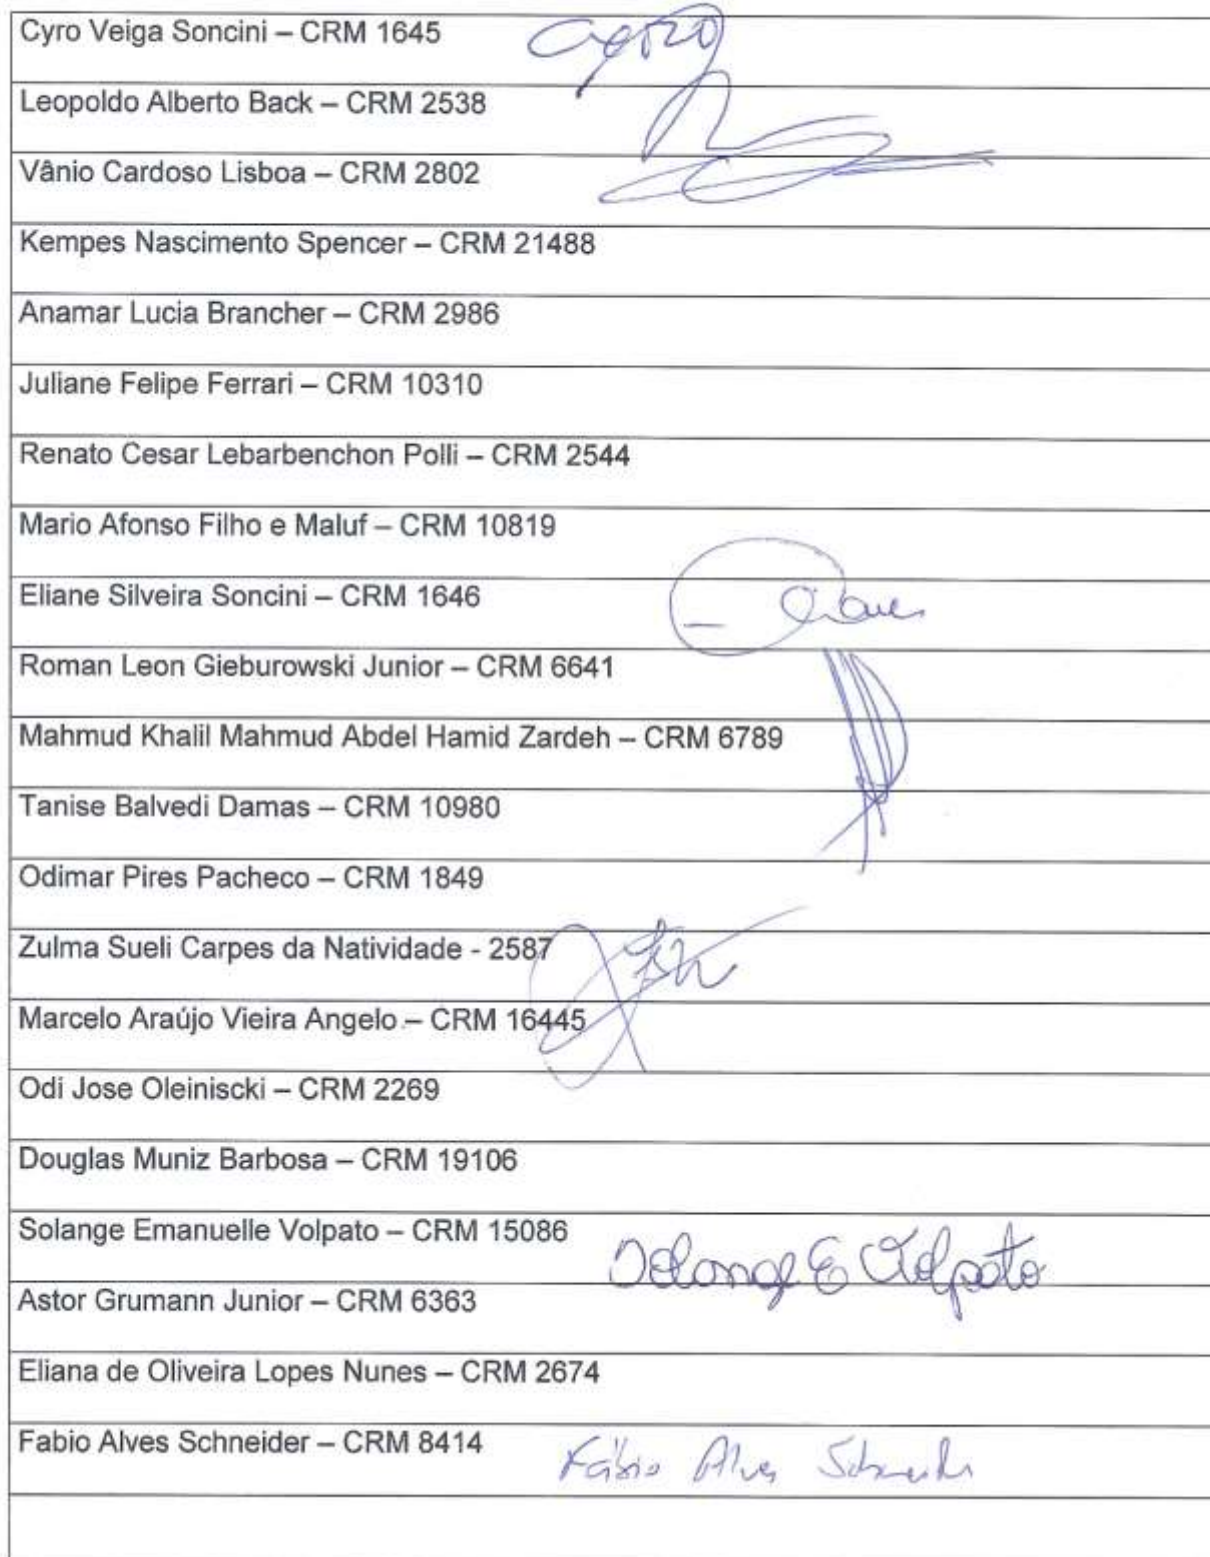 Cyro Veiga Soncini – CRM 1645
Leopoldo Alberto Back – CRM 2538
Vânio Cardoso Lisboa – CRM 2802
Kempes Nascimento Spencer – CRM 21488
Anamar Lucia Brancher – CRM 2986
Juliane Felipe Ferrari – CRM 10310
Renato Cesar Lebarbenchon Polli – CRM 2544
Mario Afonso Filho e Maluf – CRM 10819
Eliane Silveira Soncini – CRM 1646
Roman Leon Gieburowski Junior – CRM 6641
Mahmud Khalil Mahmud Abdel Hamid Zardeh – CRM 6789
Tanise Balvedi Damas – CRM 10980
Odimar Pires Pacheco – CRM 1849
Zulma Sueli Carpes da Natividade - 2587
Marcelo Araújo Vieira Angelo – CRM 16445
Odi Jose Oleiniscki – CRM 2269
Douglas Muniz Barbosa – CRM 19106
Solange Emanuelle Volpato – CRM 15086
Solange E Volpato
Astor Grumann Junior – CRM 6363
Eliana de Oliveira Lopes Nunes – CRM 2674
Fabio Alves Schneider – CRM 8414 Fábio Alves Schneider